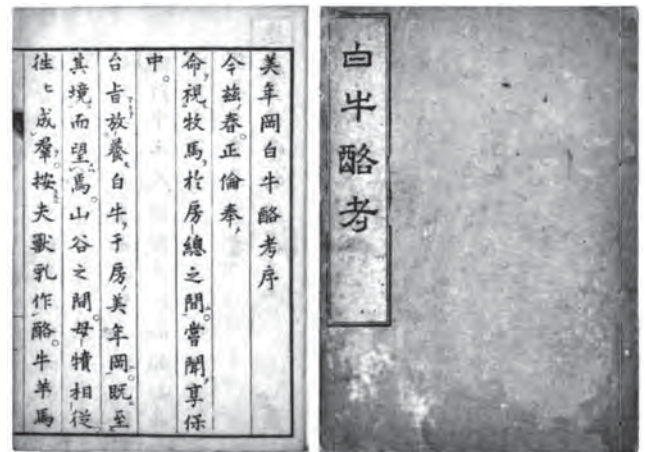 白牛酪考
美年岡白牛酪考序
今茲春。正倫奉
命視牧馬於房總之間。嘗聞享保
中。
台旨放養白牛于房美年岡。既至
其境而望焉。山谷之間。母犢相從
徃〻成羣。按夫獸乳作酪。牛羊馬